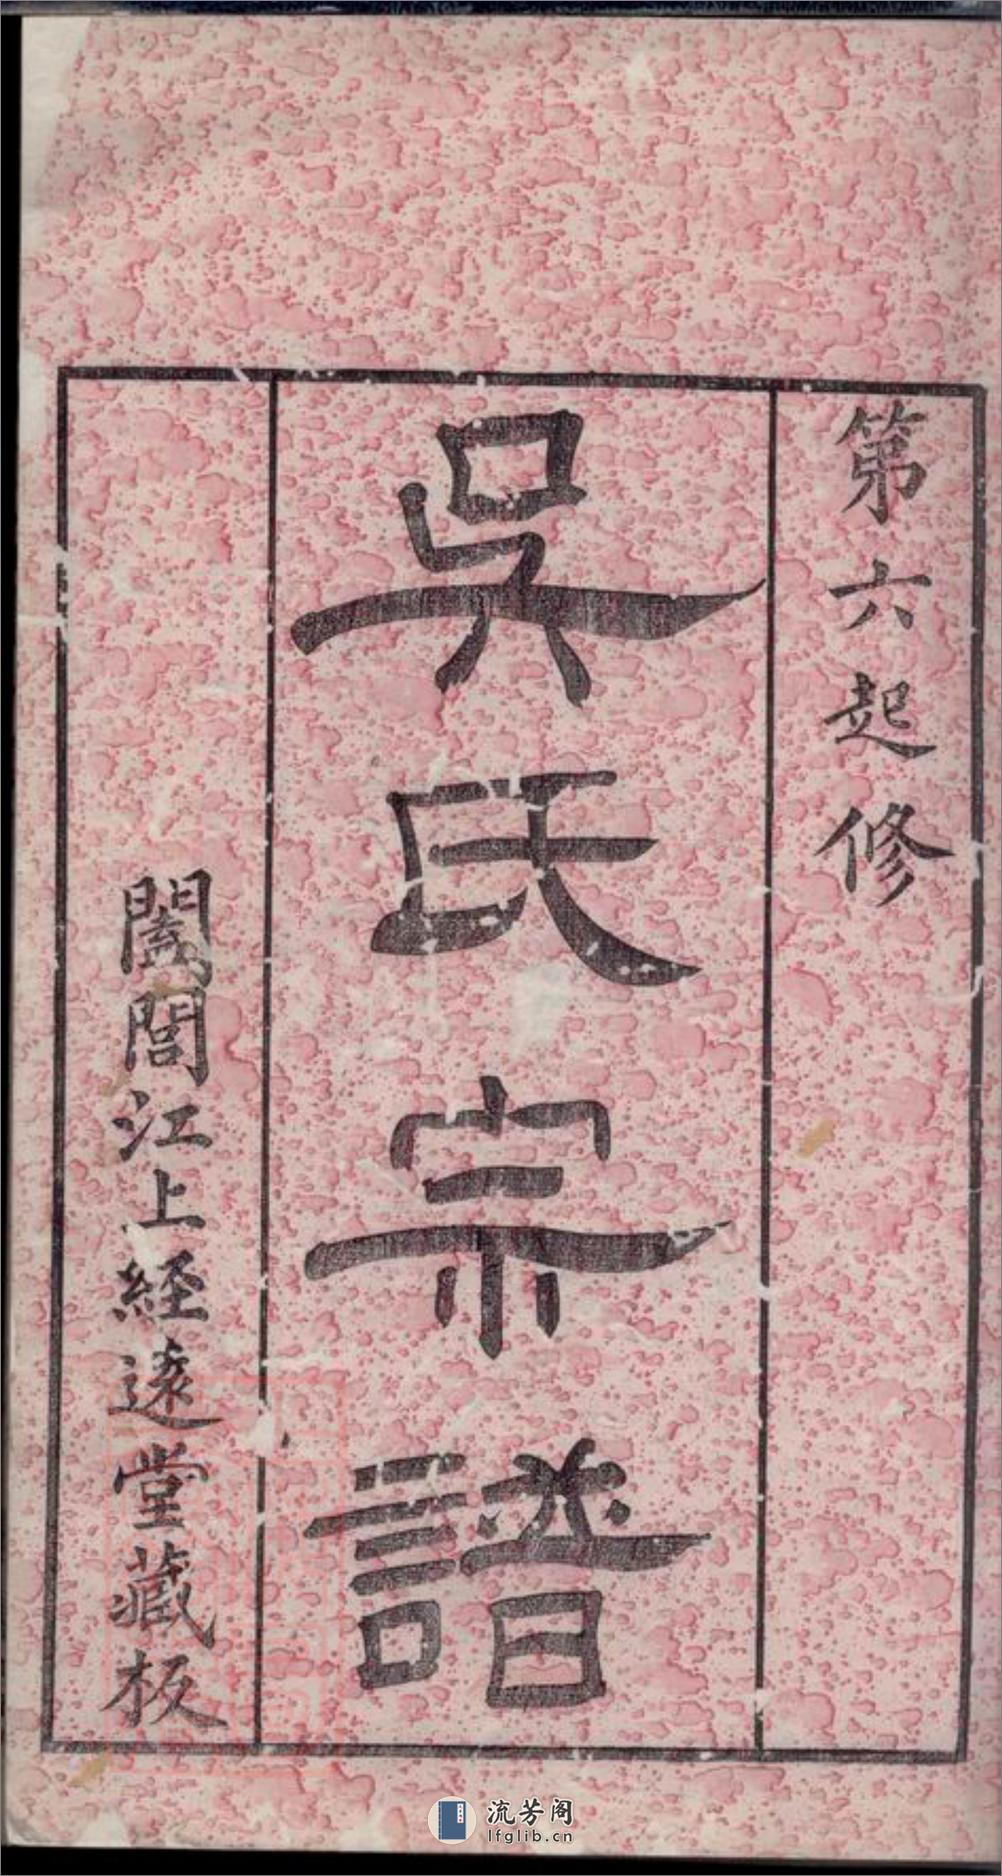 第六起修
吳氏宗譜
闔閭江上経遠堂藏板
流芳阁
lfglib.cn